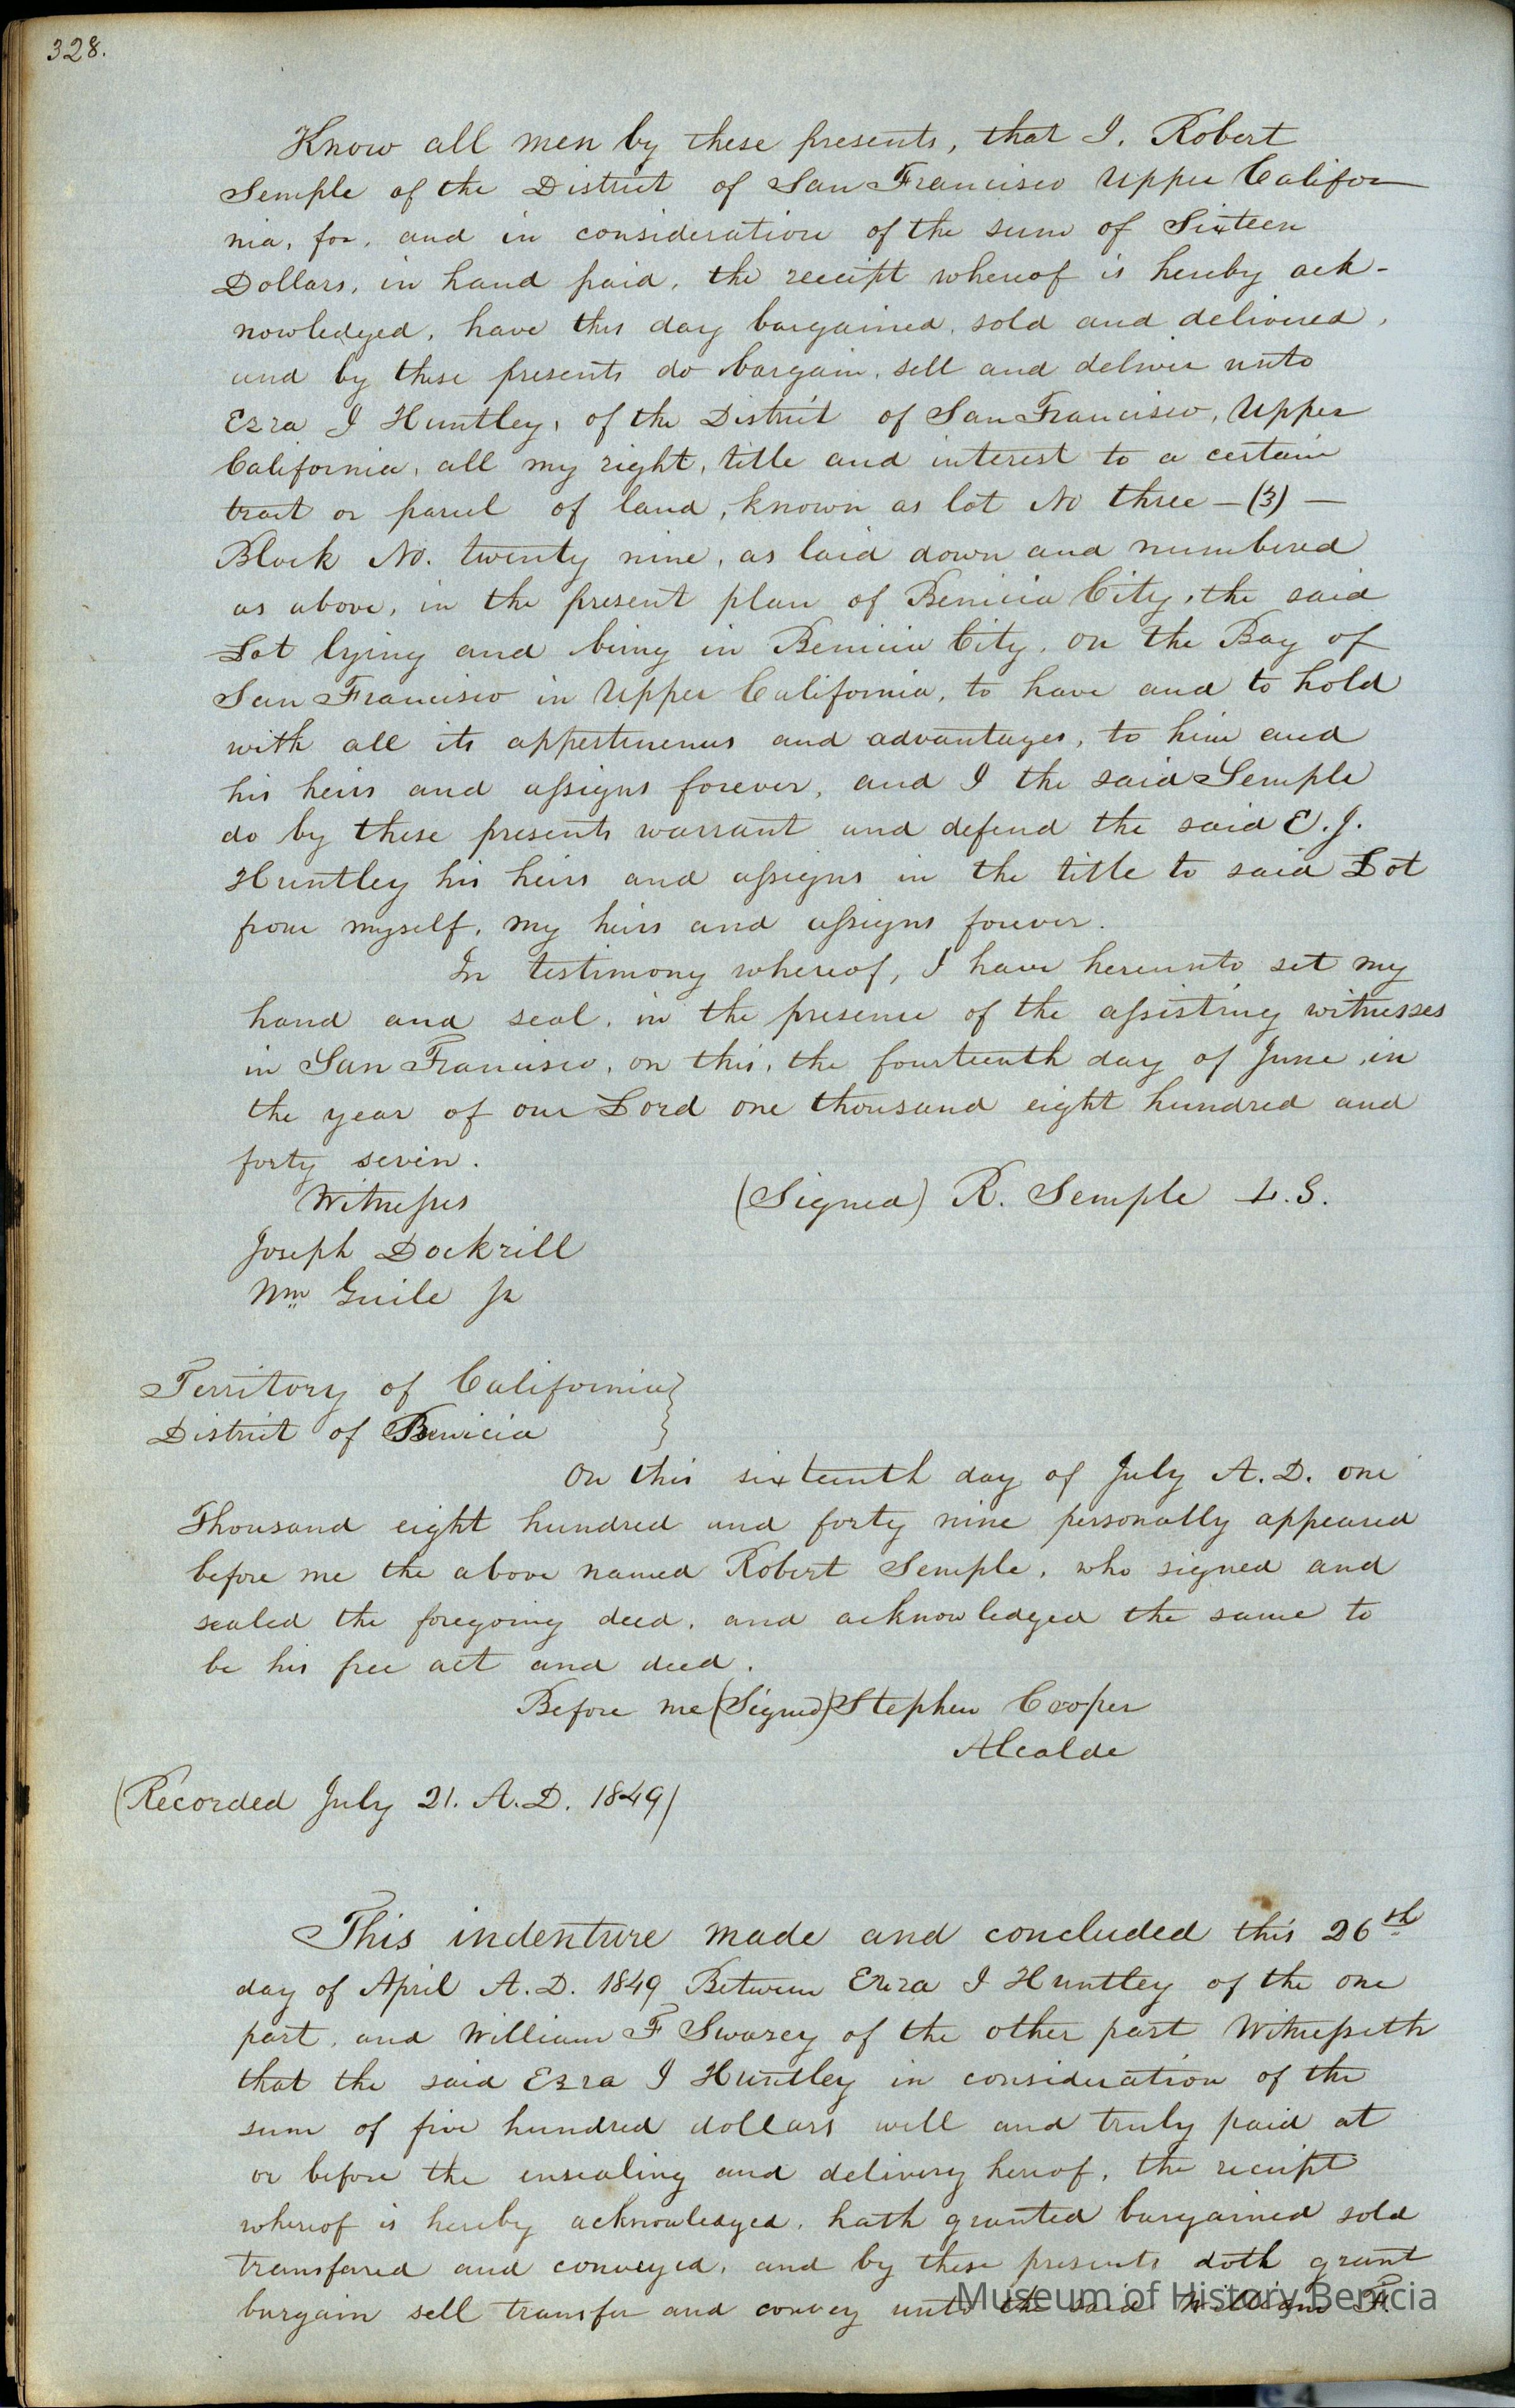 328.
Know all men by these presents, that I. Robert
Semple of the District of San Francisco Upper Califor
nia, for, and in consideration of the sum of Sixteen
Dollars, in hand paid, the receipt whereof is hereby ack-
nowledged, have this day bargained, sold and delivered,
and by these presents do bargain, sell and deliver unto
Ezra I Huntley, of the District of San Francisco, Upper
California, all my right, title and interest to a certain
tract or parcel of land, known as lot No three – (3) –
Block No. twenty nine, as laid down and numbered
as above, in the present plan of Benicia City, the said
Lot lying and being in Benicia City, on the Bay of
San Francisco in Upper California, to have and to hold
with all its appertenences and advantages, to him and
his heirs and assigns forever, and I the said Semple
do by these presents warrant and defend the said E. J.
Huntley his heirs and assigns in the title to said Lot
from myself, my heirs and assigns forever.
In testimony whereof, I have hereunto set my
hand and seal, in the presence of the assisting witnesses
in San Francisco, on this, the fourteenth day of June, in
the year of our Lord one thousand eight hundred and
forty seven.
Witnesses (Signed) R. Semple L.S.
Joseph Dockrill
Wm Guile Jr
Territory of California }
District of Benicia }
On this sixteenth day of July A. D. one
Thousand eight hundred and forty nine personally appeared
before me the above named Robert Semple, who signed and
sealed the foregoing deed, and acknowledged the same to
be his free act and deed.
Before me (Signed) Stephen Cooper
Alcalde
(Recorded July 21. A. D. 1849)
This indenture made and concluded this 26th
day of April A. D. 1849 Between Ezra I Huntley of the one
part, and William F Swasey of the other part Witnesseth
that the said Ezra I Huntley in consideration of the
sum of five hundred dollars well and truly paid at
or before the ensealing and delivery hereof, the receipt
whereof is hereby acknowledged, hath granted bargained sold
transfered and conveyed, and by these presents doth grant
bargain sell transfer and convey unto the said William F.
Museum of History Benicia